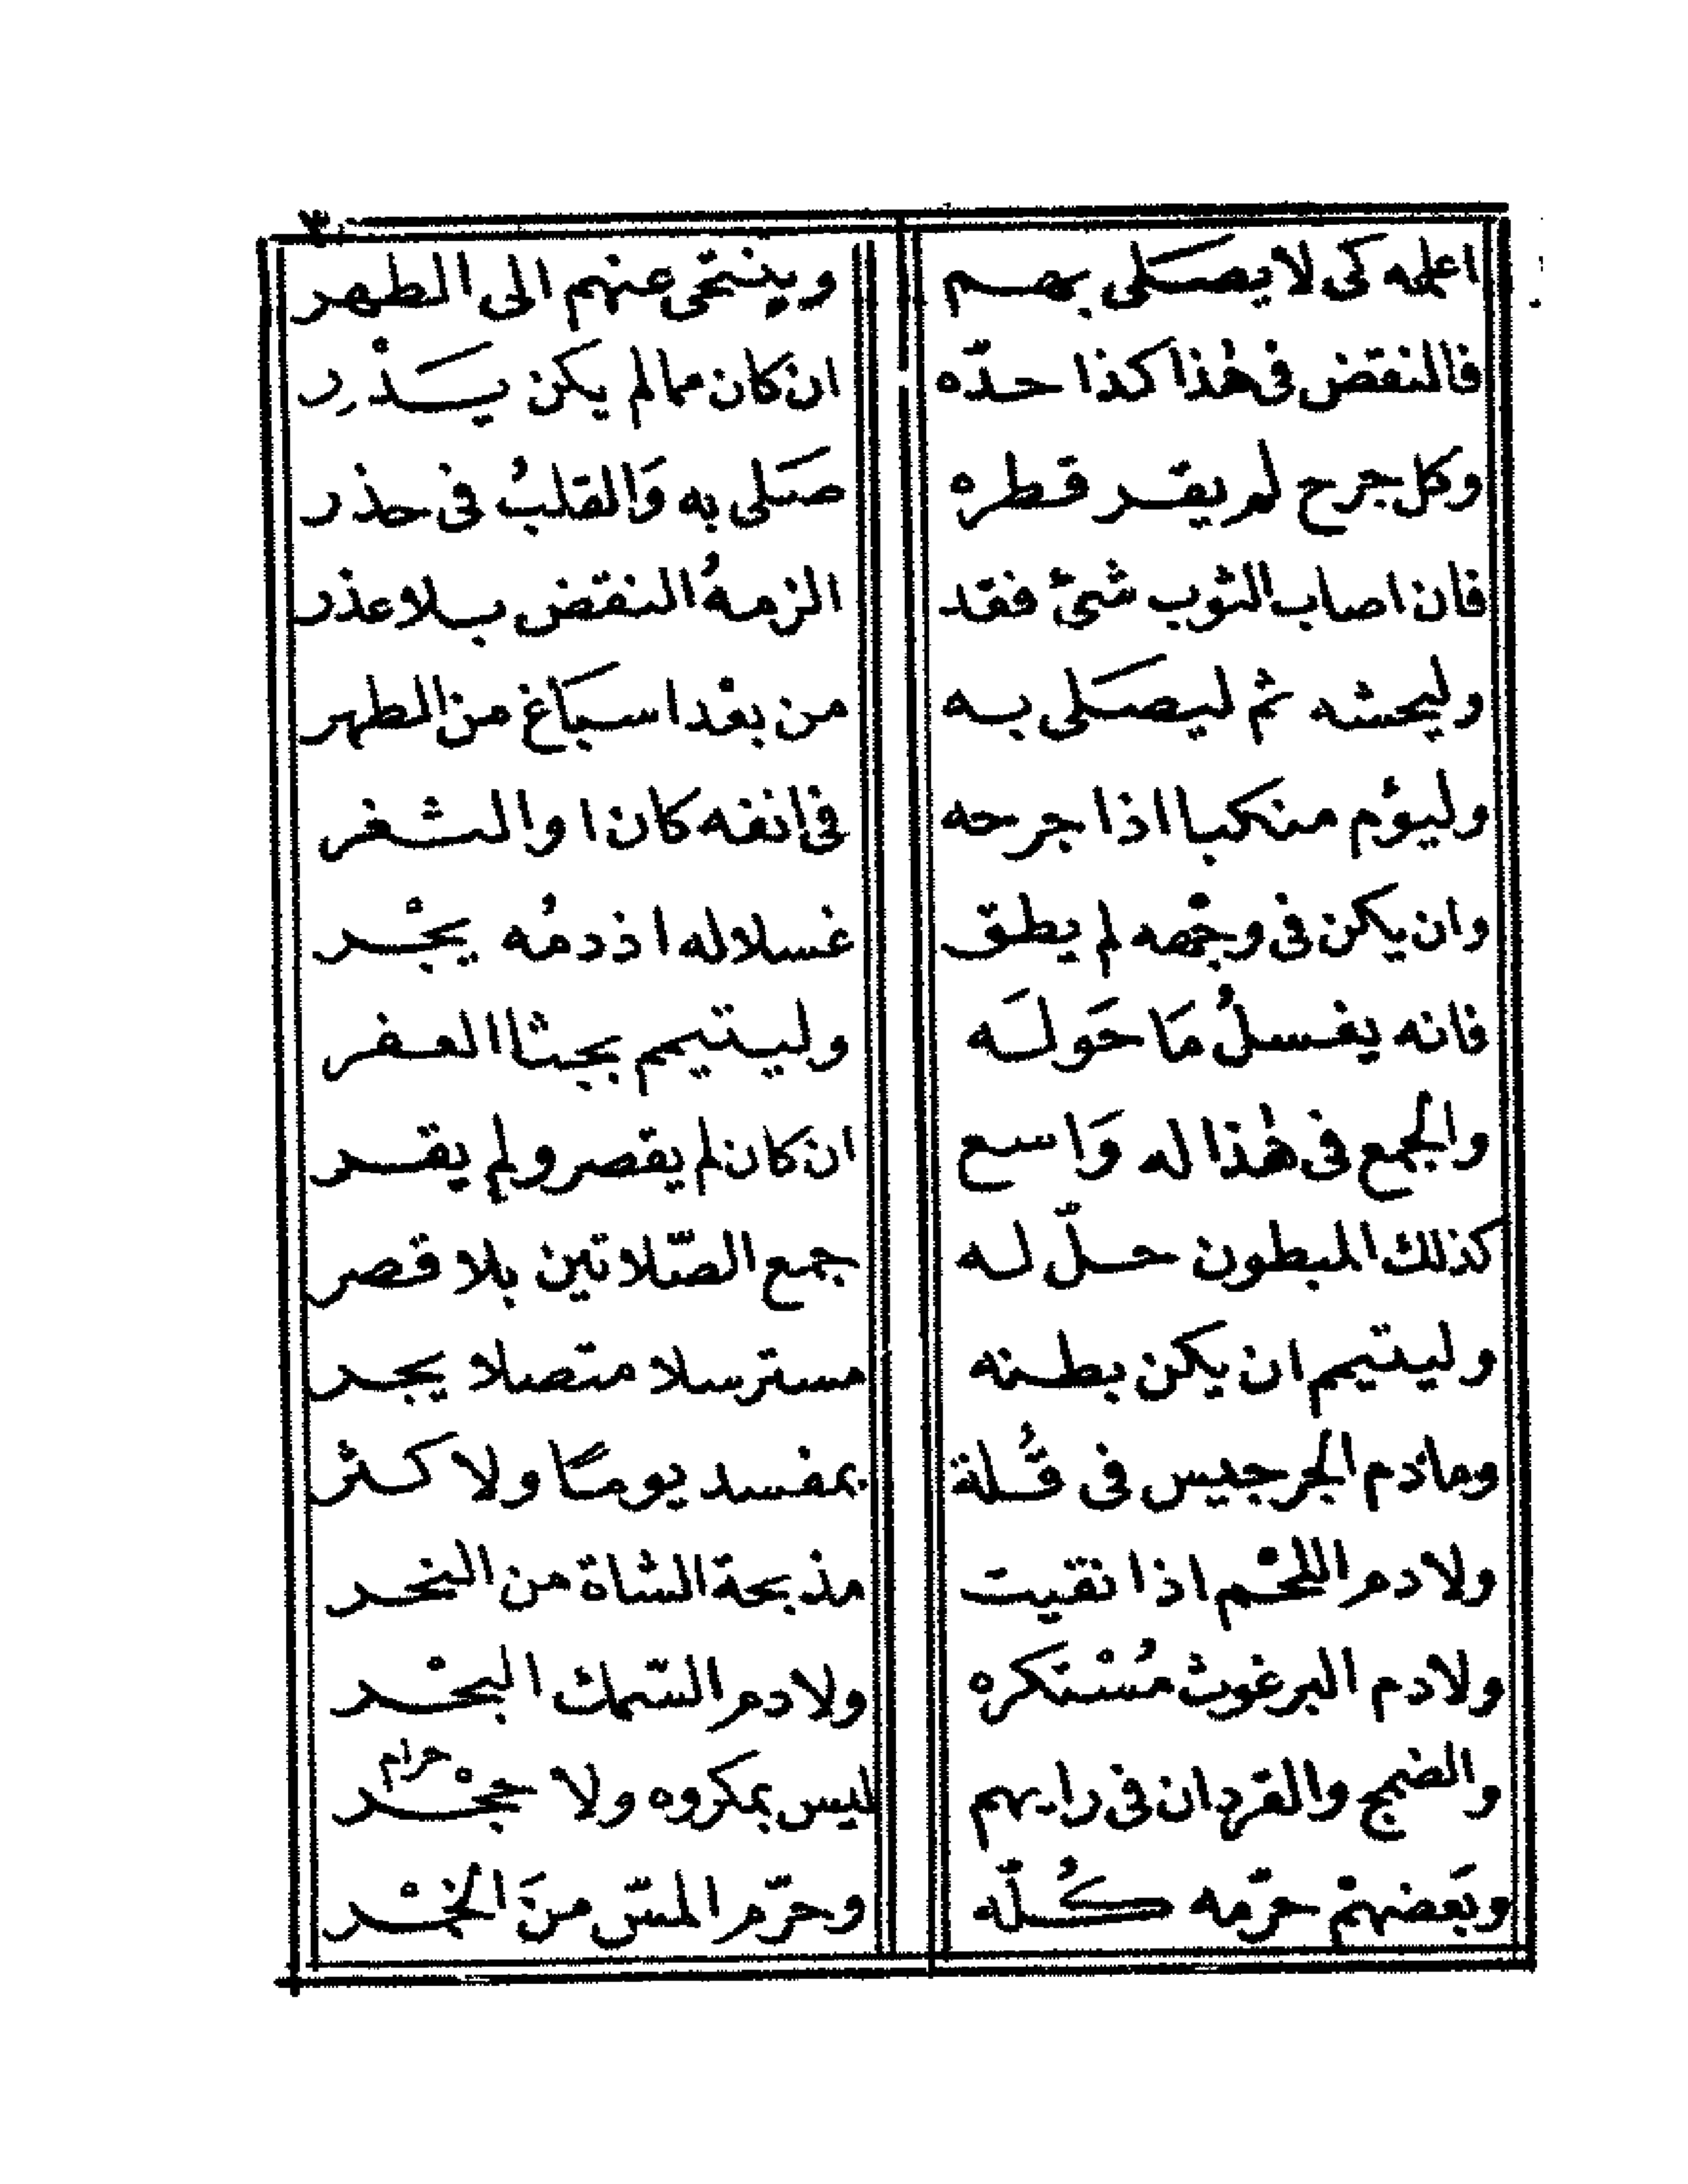 ٣
اعلمه كى لا يصَلى بهم وينتحى عنهم الى الطهر
فالنقض فى هٰذا كذا حدّه ان كان مما لم يكن يَذْرِ
وكل جرح لم يقر قطره صَلى به وَالقلبُ فى حذر
فان اصاب الثوب شئ فقد الزمهُ النقض بلا عذر
وليحشه ثم ليصَلى به من بعْد اسبَاغ من الطهر
وليؤم منكبا اذا جرحه فى انفه كان او الثغر
وان يكن فى وجْهه لم يطق غسلا له اذ دمُه يجْر
فانه يغسلُ مَا حَولَه وليتيمم بجثا العفر
والجمع فى هٰذا له وَاسع ان كان لم يقصر ولم يقر
كذلك المبطون حلّ له جمع الصّلاتين بلا قصر
وليتيمم ان يكن بطنه مسترسلا متصلا يجر
وما دم الجرجيس فى قُلة بمفسد يومًا ولا كثر
ولا دم اللحْم اذا نقيت مذبحة الشاة من النحر
ولا دم البرغوث مُسْتكره ولا دم السّمك البحْر
والضمج والقردان فى رايهم ليس بمكروه ولا حجْر
حرام
وبَعضهمْ حرّمه كُلّه وحرّم المسّ منَ الخمْر